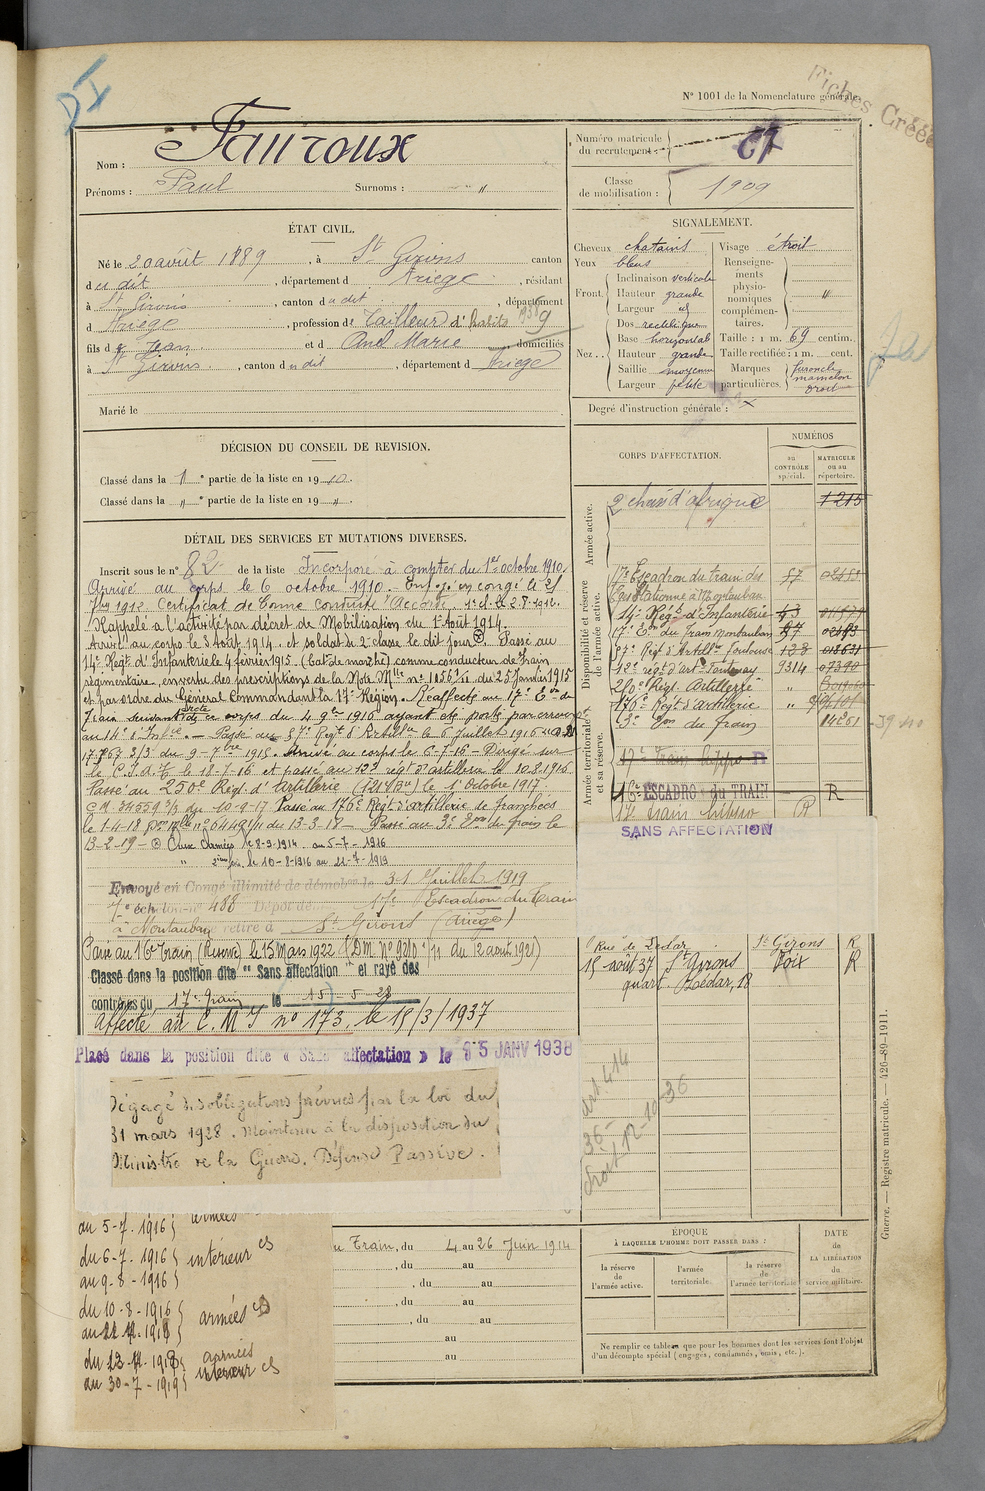 DI
Fiches Créées
N° 1001 de la Nomenclature générale.
Nom : Fauroux
Prénoms : Paul Surnoms : "
Numéro matricule du recrutement : 67
Classe de mobilisation : 1909
ÉTAT CIVIL.
Né le 20 août 1889, à St Girons canton
dudit, département d Ariège, résidant
à St Girons, canton dudit, département
d Ariège, profession de Tailleur d'habits
fils de Jean et d Anel Marie domiciliés
à St Girons, canton dudit, département d Ariège
Marié le
SIGNALEMENT.
Cheveux chatains
Yeux bleus
Front. Inclinaison verticale
Hauteur grande
Largeur
Nez... Dos rectiligne
Base horizontal
Hauteur grande
Saillie moyenne
Largeur petite
Visage étroit
Renseignements physionomiques complémentaires. "
Taille : 1 m. 69 centim.
Taille rectifiée : 1 m. cent.
Marques particulières. furoncle mamelon droit
Degré d'instruction générale : x
DÉCISION DU CONSEIL DE REVISION.
Classé dans la 1e partie de la liste en 1910.
Classé dans la " e partie de la liste en 19 ".
DÉTAIL DES SERVICES ET MUTATIONS DIVERSES.
Inscrit sous le n° 82 de la liste Incorporé à compter du 1er octobre 1910.
Arrivé au corps le 6 octobre 1910. Envoyé en congé le 25
7bre 1912. Certificat de bonne conduite "Accordé".
Rappelé à l'activité par décret de Mobilisation du 1er Août 1914.
Arrivé au corps le 3 Août 1914. et soldat de 2e classe le dit jour. Passé au
14e Régt d'Infanterie le 4 février 1915. (Bat. de marche) comme conducteur de train
régimentaire, en vertu des prescriptions de la Note Mlle n° 1156 du 25 Janvier 1915
et par ordre du Général Commandant la 17e Région. Réaffecté au 17e Eon du
Train suivant note de ce corps du 4 9bre 1916 ayant été porté par erreur
au 14e d'Infrie. — Passé au 57e Régt d'Artillie le 6 Juillet 1916
17767 3/3 du 9-7bre 1915. Arrivé au corps le 6-7-16 - Dirigé sur
le C.I.d.A. le 18-7-16 et passé au 12e régt d'artillerie le 10.8.1916
Passé au 250e Régt. d'Artillerie (121e Bie) le 1er Octobre 1917
C.M. 34559 3/3 du 10-9-17 Passé au 176e Régt d'artillerie de tranchées
le 1-4-18 du 13-3-18 — Passé au 3e Eon du train le
13-2-19 — Aux Armées le 8-9-1914 au 5-7-1916
" le 10-8-1916 au 22-7-1919
Envoyé en Congé illimité de démobon le 31 Juillet 1919
7e échelon n° 488 Dépôt de 17e Escadron du Train
à Montauban se retire à St Girons (Ariège)
Passé au 16e Train (Réserve) le 15 Mars 1922 (D.M. N° 9210 /11 du 12 août 1921)
Classé dans la position dite " Sans affectation " et rayé des
contrôles du 17e train le 15-5-28
Affecté au C.M.I n° 173. le 15/3/1937
Placé dans la position dite « Sans affectation » le 5 JANV 1938
Dégagé des obligations prévues par la loi du
31 mars 1928. Maintenu à la disposition du
Ministre de la Guerre. Défense Passive.
CORPS D'AFFECTATION.
NUMÉROS
au CONTRÔLE spécial.
MATRICULE ou au répertoire.
Armée active.
2e chass. d'afrique 1215
Disponibilité et réserve de l'armée active.
17e Escadron du train des 57
Eqs Stationné à Montauban
14e Régt d'Infanterie 43
17e Eon du Train Montauban 57
57e Régt d'Artillie Toulouse 128
12e régt d'art. Fontenay 9314 07390
250e Régt. Artillerie "
176e Régt d'artillerie "
3e Eon du Train 14281
Armée territoriale et sa réserve.
17e train hippo R
16e ESCADRON du TRAIN R
17e train hippo R
SANS AFFECTATION
Rue de Lédar St Girons R
15 août 37 St Girons Foix R
quart. Lédar, 18
du 5-7-1916 } armées
du 6-7-1916 } intérieur CS
au 9-8-1916 }
du 10-8-1916 } armées
du 30-7-1919
Train, du 4 au 26 Juin 1914
, du au
, du au
, du au
, du au
au
au
ÉPOQUE
À LAQUELLE L'HOMME DOIT PASSER DANS :
la réserve de l'armée active.
l'armée territoriale.
la réserve de l'armée territoriale
DATE
de
LA LIBÉRATION
du
service militaire.
Ne remplir ce tableau que pour les hommes dont les services font l'objet
d'un décompte spécial (engagés, condamnés, omis, etc.).
Guerre. — Registre matricule. — 426-89-1911.